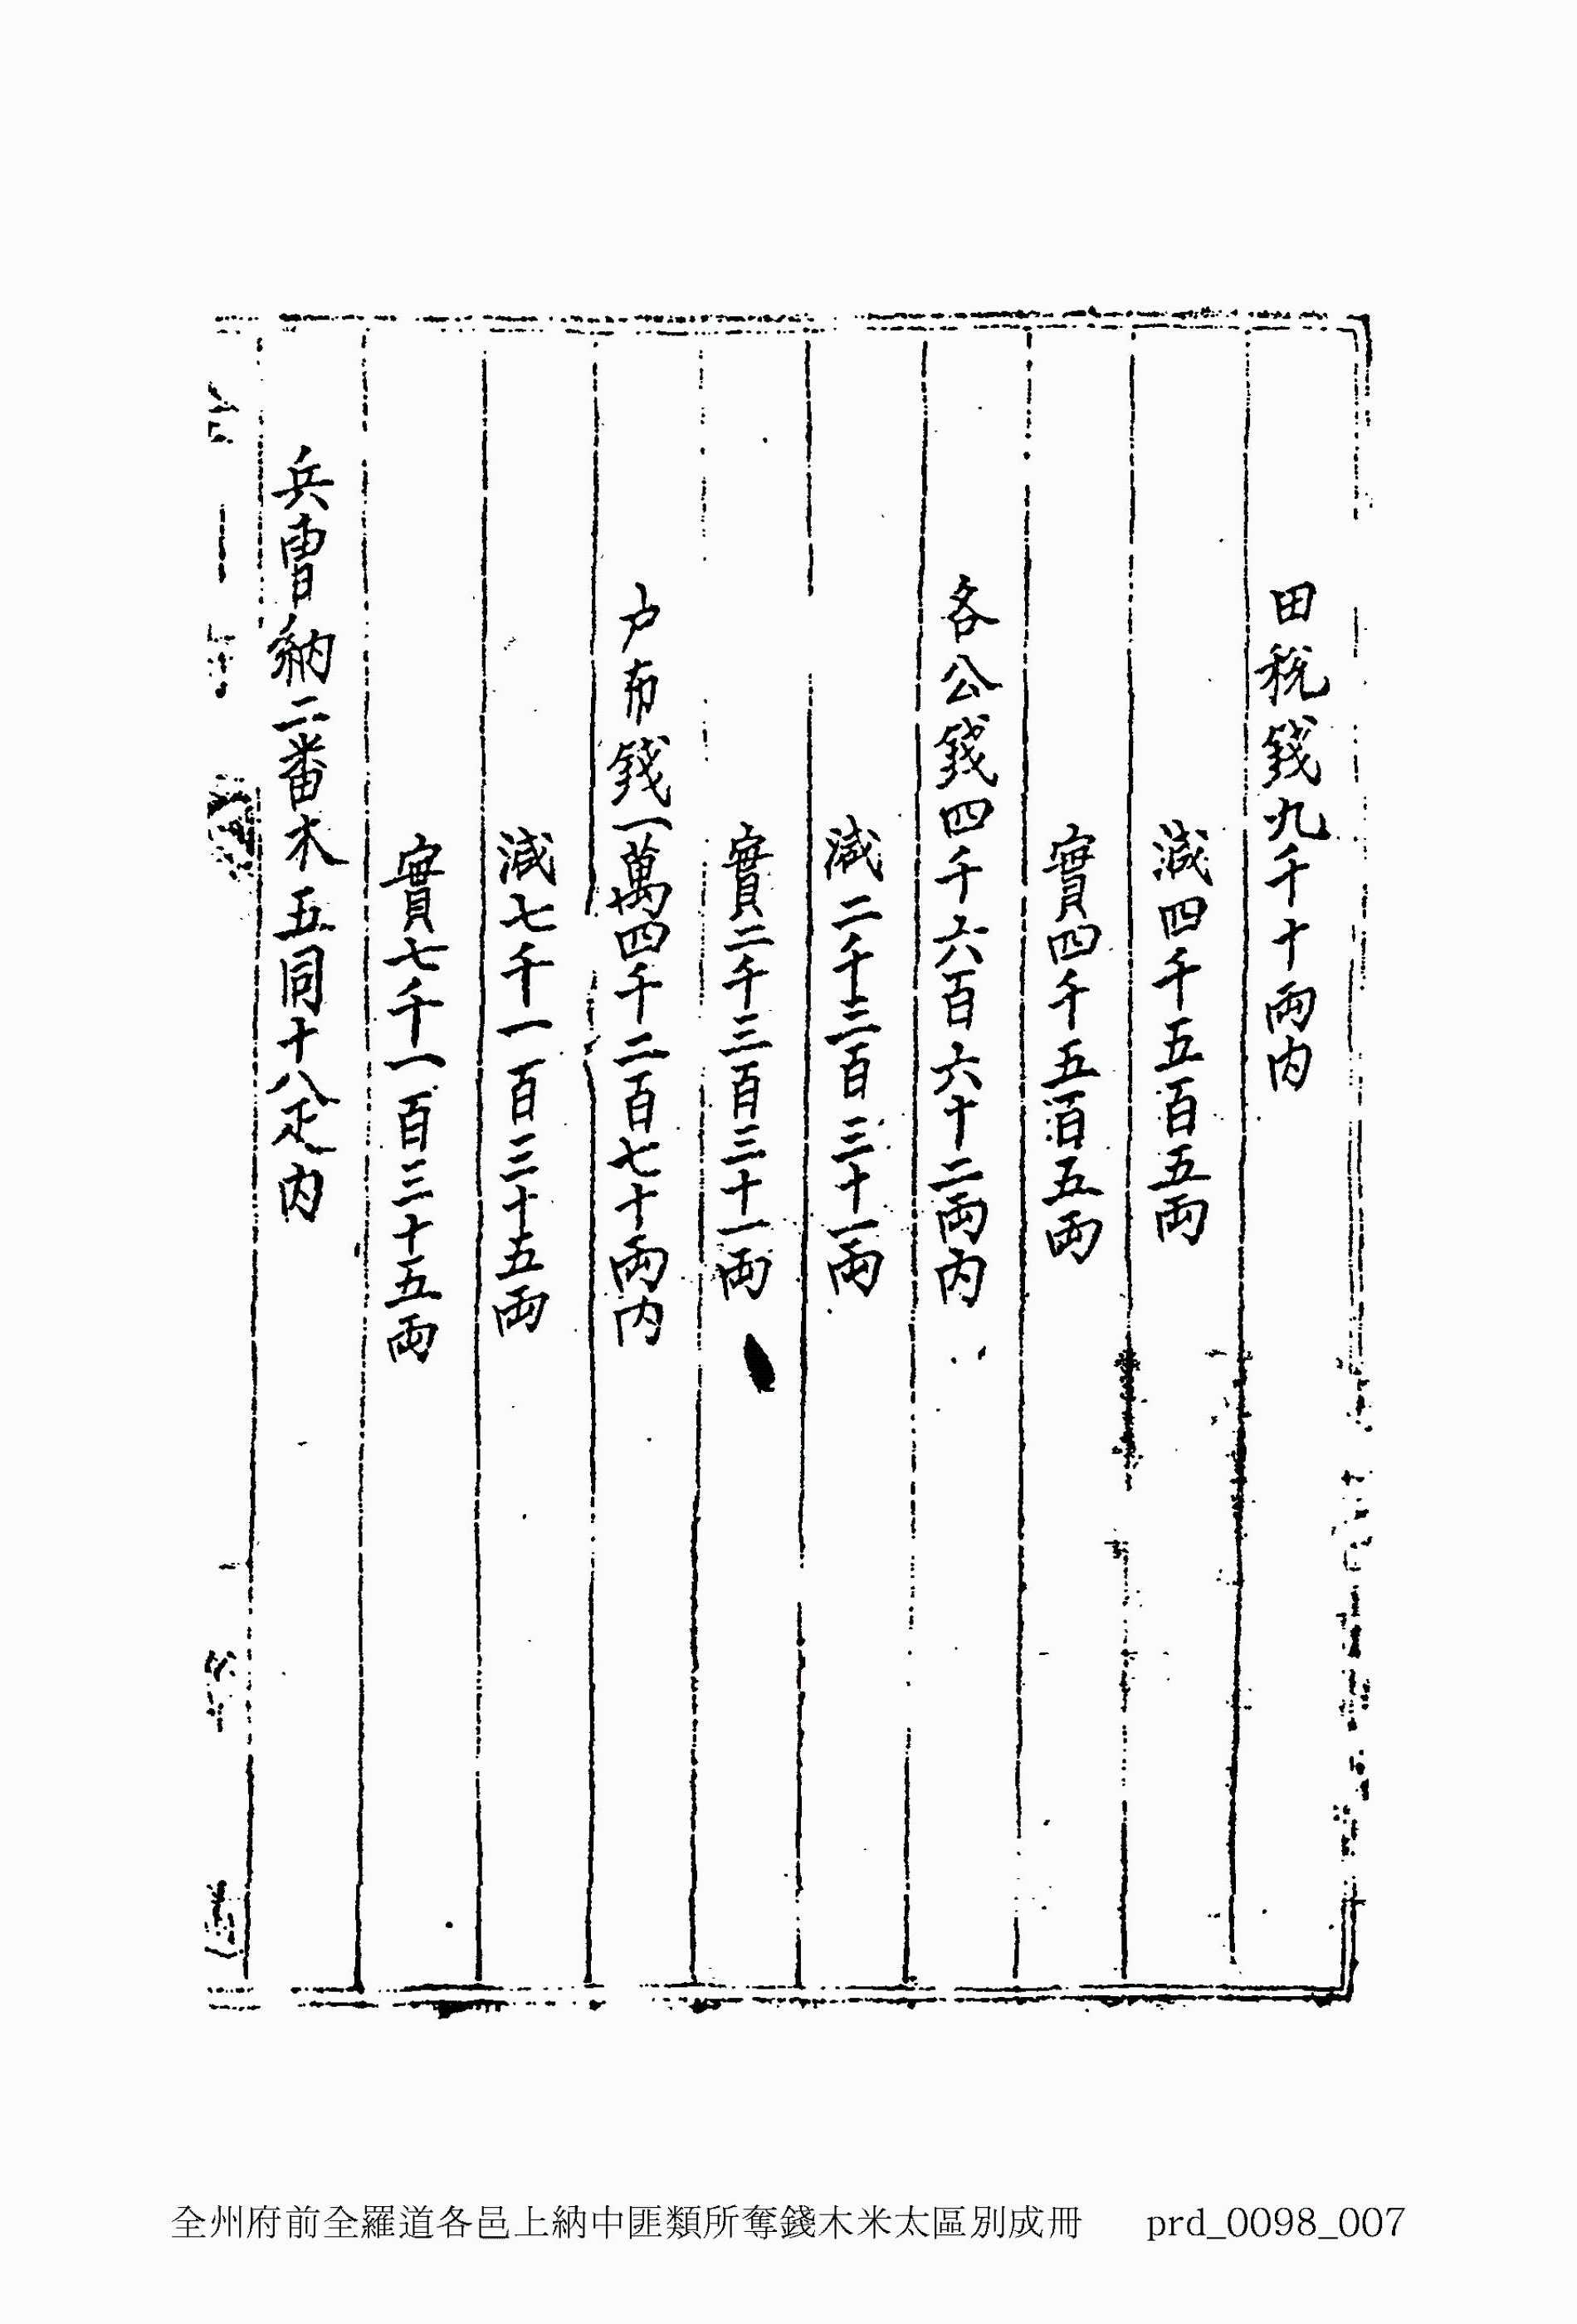 田稅錢九千十兩內
減四千五百五兩
實四千五百五兩
各公錢四千六百六十二兩內
減二千三百三十一兩
實二千三百三十一兩
戶布錢一萬四千二百七十兩內
減七千一百三十五兩
實七千一百三十五兩
兵曹納二番木五同十八疋內
全州府前全羅道各邑上納中匪類所奪錢木米太區別成冊 prd_0098_007